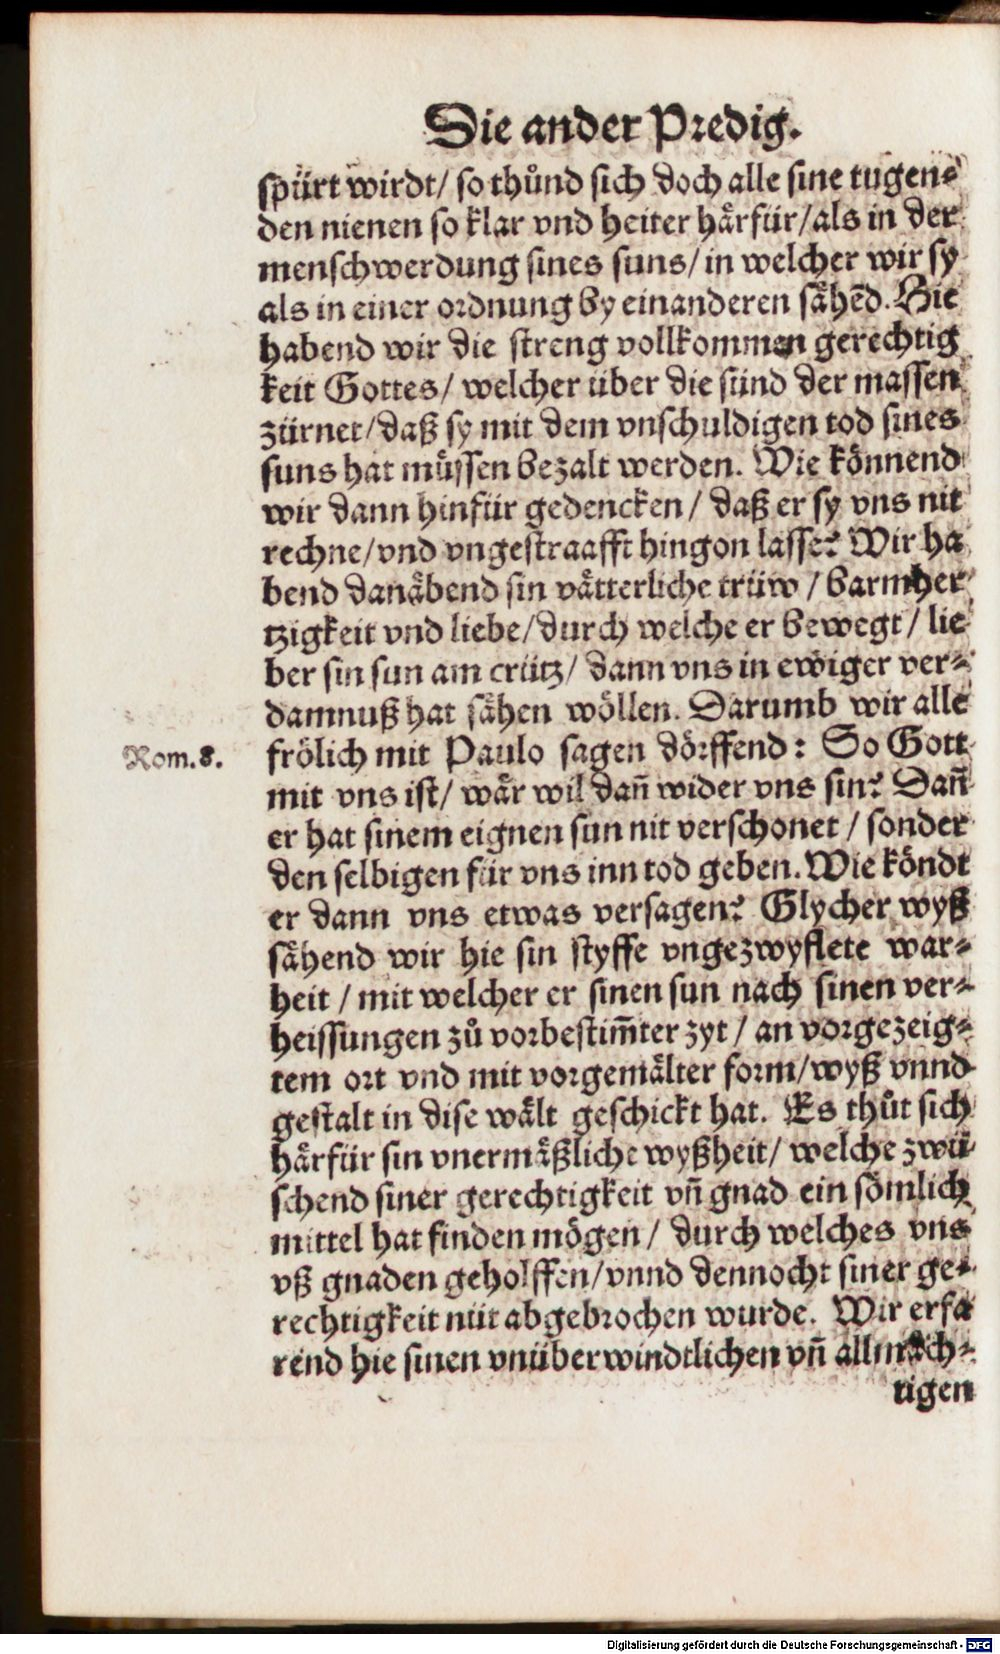 Die ander Predig.
spürt wirdt/ so thůnd sich doch alle sine tugen-
den nienen so klar vnd heiter härfür/als in der
menschwerdung sines suns/ in welcher wir sy
als in einer ordnung by einanderen sähēd. Hie
habend wir die streng vollkommen gerechtig
keit Gottes/ welcher über die sünd der massen
zürnet/daß sy mit dem vnschuldigen tod sines
suns hat müssen bezalt werden. Wie könnend
wir dann hinfür gedencken / daß er sy vns nit
rechne/vnd vngestraafft hingon lasse? Wir ha
bend danäbend sin vätterliche trüw / barmher
tzigkeit vnd liebe/durch welche er bewegt/ lie
ber sin sun am crütz/ dann vns in ewiger ver-
damnuß hat sähen wöllen. Darumb wir alle
Rom.8.
frölich mit Paulo sagen dörffend: So Gott
mit vns ist/ wär wil dañ wider vns sin? Dañ
er hat sinem eignen sun nit verschonet / sonder
den selbigen für vns inn tod geben. Wie köndt
er dann vns etwas versagen? Glycher wyß
sähend wir hie sin styffe vngezwyflete war-
heit / mit welcher er sinen sun nach sinen ver-
heissungen zů vorbestim̄ter zyt / an vorgezeig-
tem ort vnd mit vorgemälter form/wyß vnnd
gestalt in dise wält geschickt hat. Es thůt sich
härfür sin vnermäßliche wyßheit/ welche zwü-
schend siner gerechtigkeit vñ gnad ein sömlich
mittel hat finden mögen / durch welches vns
vß gnaden geholffen/vnnd dennocht siner ge-
rechtigkeit nüt abgebrochen wurde. Wir erfa
rend hie sinen vnüberwindtlichen vñ allmäch-
tigen
Digitalisierung gefördert durch die Deutsche Forschungsgemeinschaft - DFG